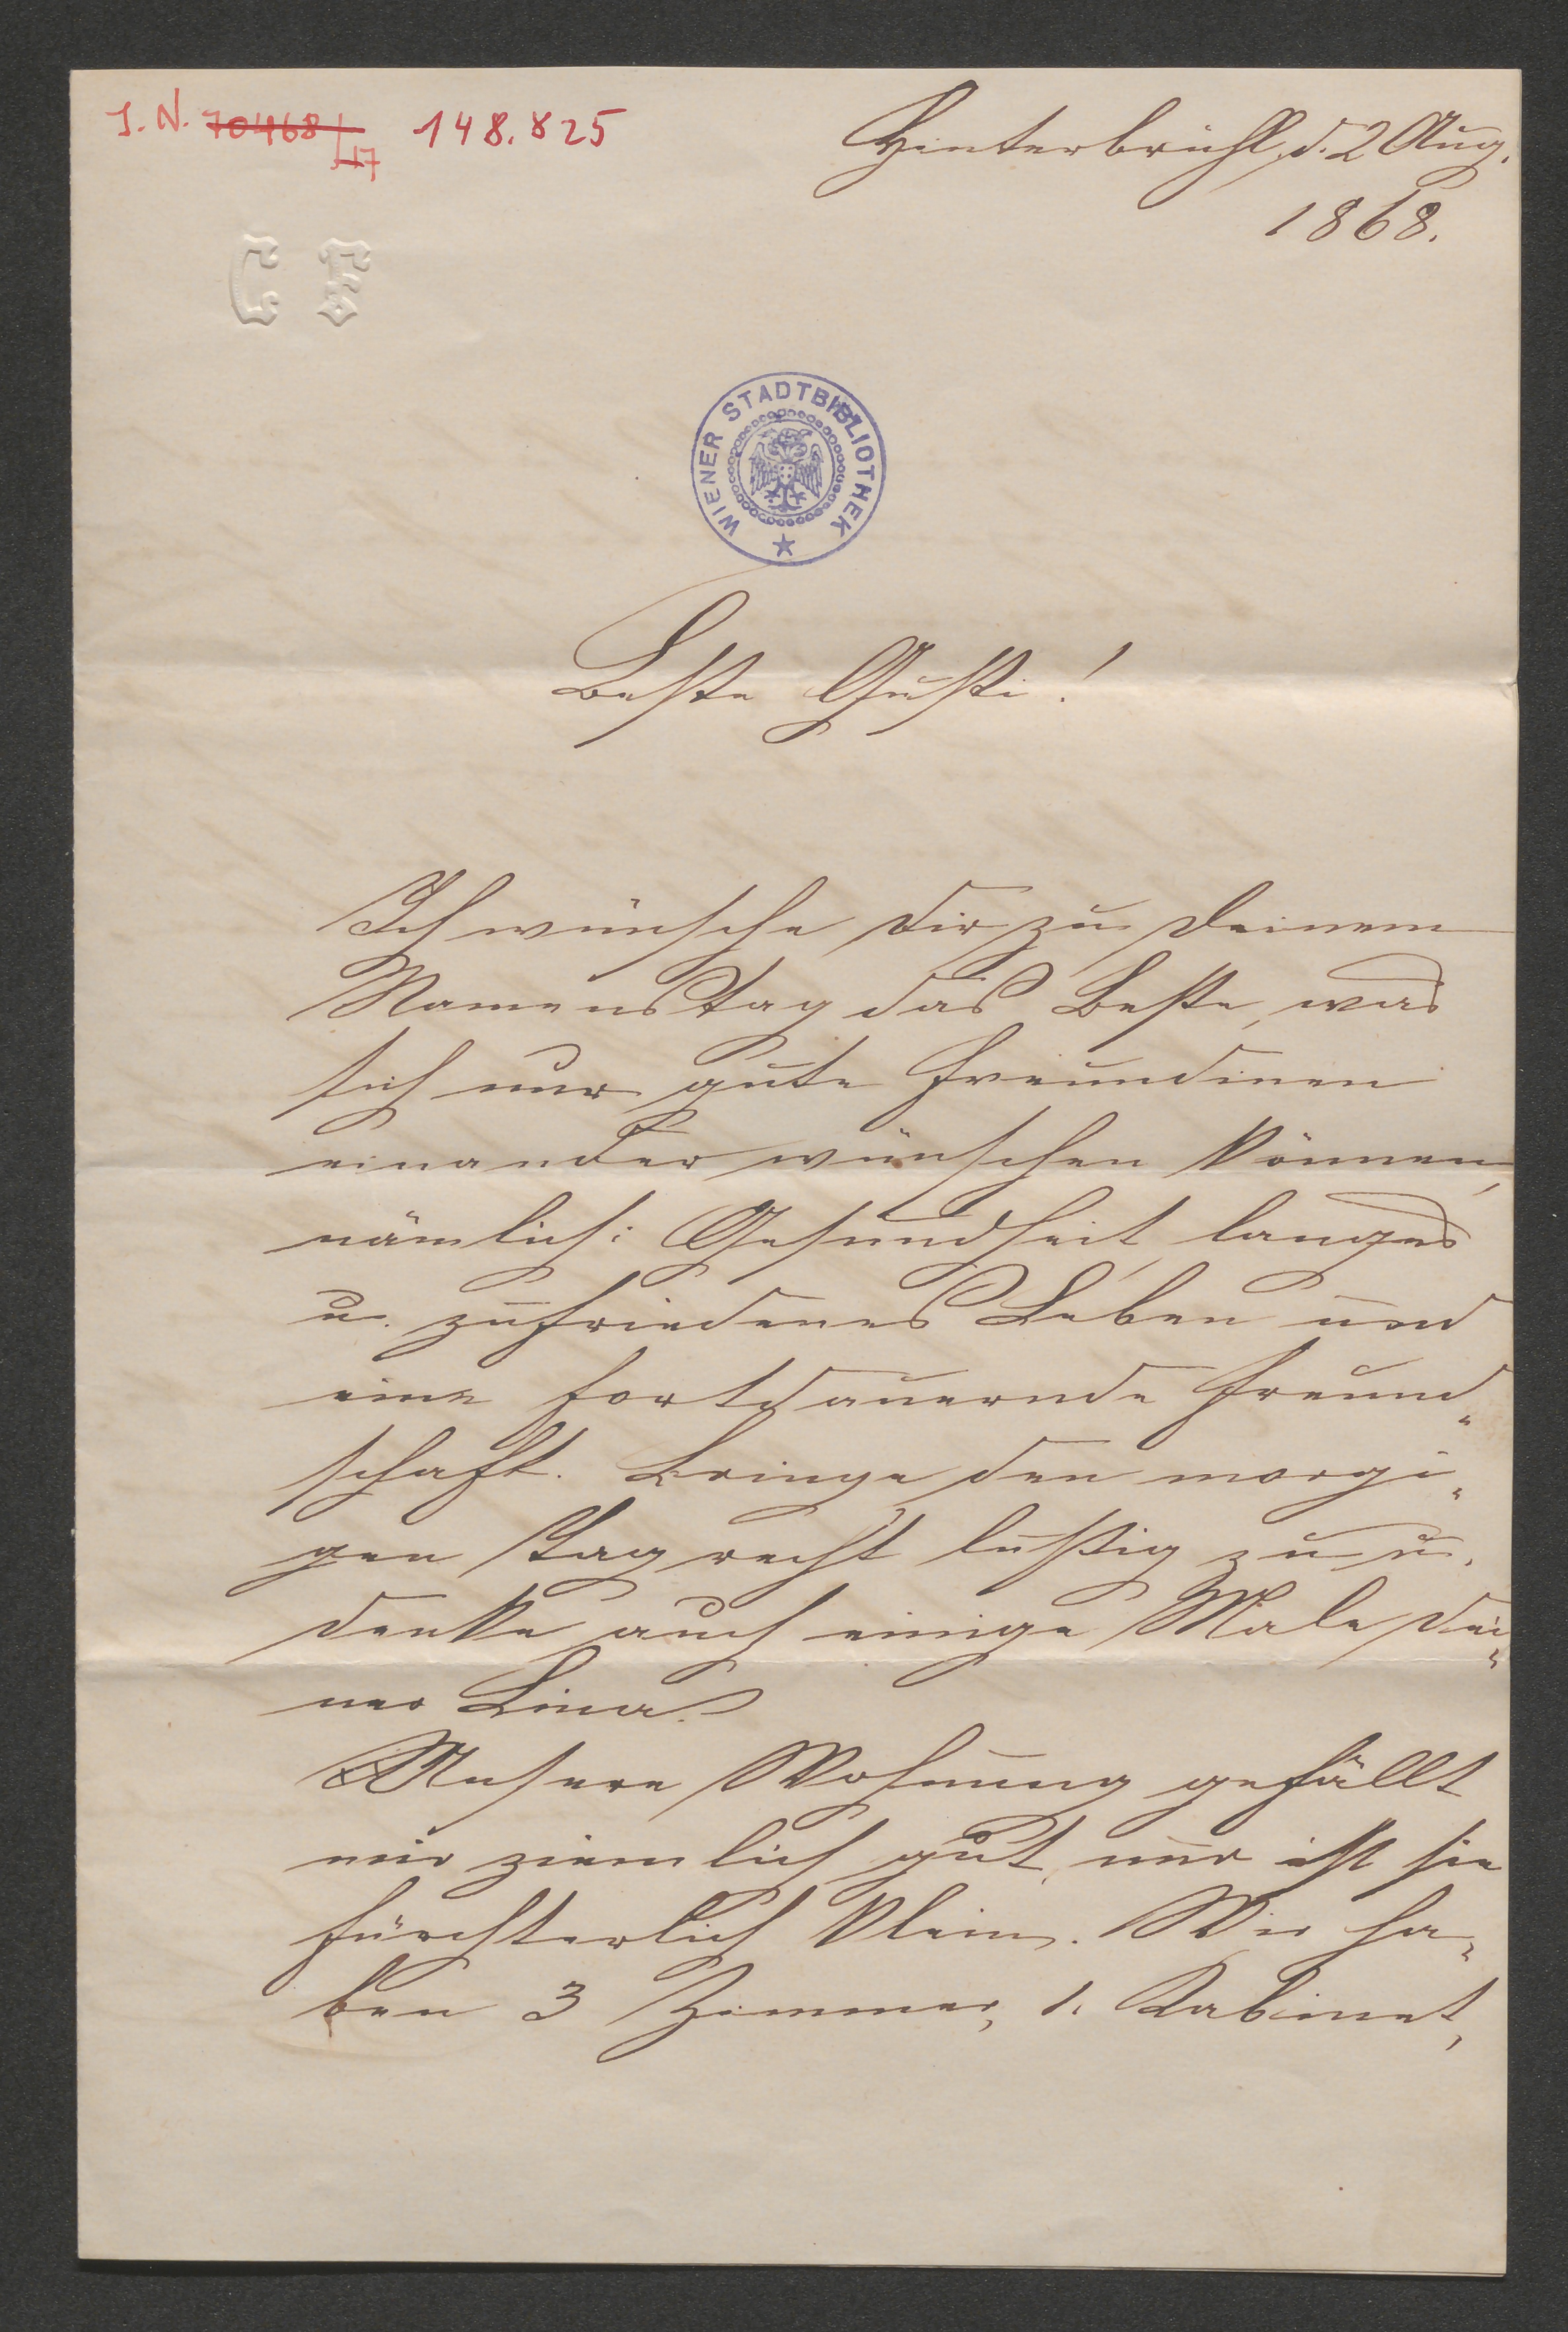 I. N. 70468/17 148.825
Hinterbrühl, d. 2 Aug.
1868.
C B
WIENER STADTBIBLIOTHEK
Beste Gusti!
Ich wünsche dir zu deinem
Namenstag das Beste, was
sich nur gute Freundinen
einander wünschen können,
nämlich: Gesundheit, langes
u. zufriedenes Leben und
eine fortdauernde Freund„
schaft. Bringe den morgi„
gen Tag recht lustig zu u.
denke auch einige Male dei„
ner Lina.
Unsere Wohnung gefällt
mir ziemlich gut, nur ist sie
fürchterlich klein. Wir ha„
ben 3 Zimmer, 1. Kabinet,